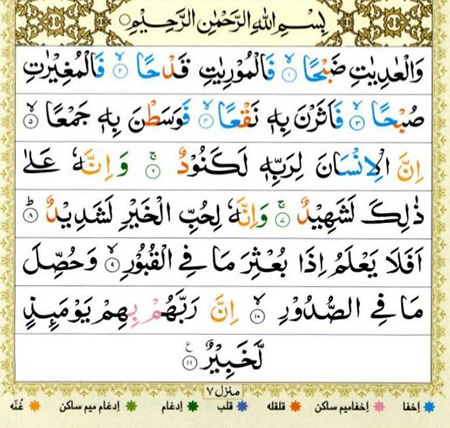 بِسْمِ اللهِ الرَّحْمٰنِ الرَّحِيْمِ
وَالْعٰدِيٰتِ ضَبْحًا ۙ﴿۱﴾ فَالْمُوْرِيٰتِ قَدْحًا ۙ﴿۲﴾ فَالْمُغِيْرٰتِ
صُبْحًا ۙ﴿۳﴾ فَاَثَرْنَ بِهٖ نَقْعًا ۙ﴿۴﴾ فَوَسَطْنَ بِهٖ جَمْعًا ۙ﴿۵﴾
اِنَّ الْاِنْسَانَ لِرَبِّهٖ لَكَنُوْدٌ ۚ﴿۶﴾ وَاِنَّهٗ عَلٰى
ذٰلِكَ لَشَهِيْدٌ ۚ﴿۷﴾ وَاِنَّهٗ لِحُبِّ الْخَيْرِ لَشَدِيْدٌ ؕ﴿۸﴾
اَفَلَا يَعْلَمُ اِذَا بُعْثِرَ مَا فِي الْقُبُوْرِ ۙ﴿۹﴾ وَحُصِّلَ
مَا فِي الصُّدُوْرِ ۙ﴿۱۰﴾ اِنَّ رَبَّهُمْ بِهِمْ يَوْمَىِٕذٍ
لَّخَبِيْرٌ ﴿۱۱﴾ ع
منزل ۷
اخفا اخفامیم ساکن قلقله قلب ادغام ادغام میم ساکن غُنّه